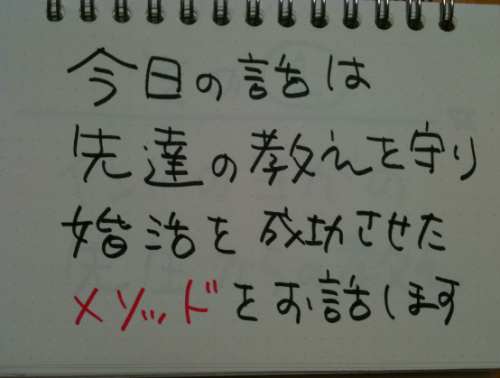 今日の話は
先達の教えを守り
婚活を成功させた
メソッドをお話します